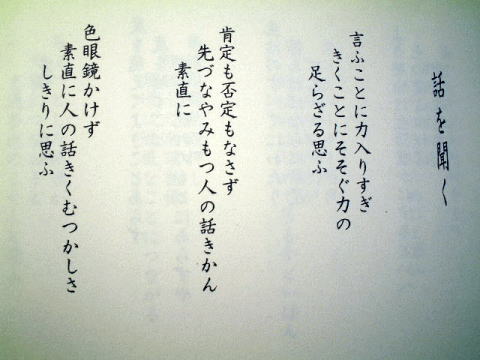 話を聞く
言ふことに力入りすぎ
きくことにそそぐ力の
足らざる思ふ
肯定も否定もなさず
先づなやみもつ人の話きかん
素直に
色眼鏡かけず
素直に人の話きくむつかしさ
しきりに思ふ